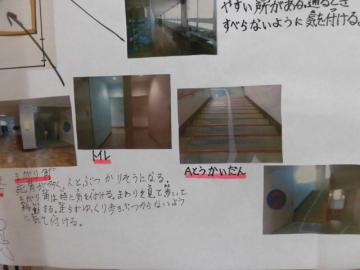 やすい所がある。通るとき
すべらないように気を付ける。
トイレ
Aとうかいだん
まがり角
死角が 人とぶつかりそうになる。
まがり角は特に気を付ける。まわりを見て歩いて
移動する。走らずゆっくり歩き、ぶつからないよう
に気を付ける。